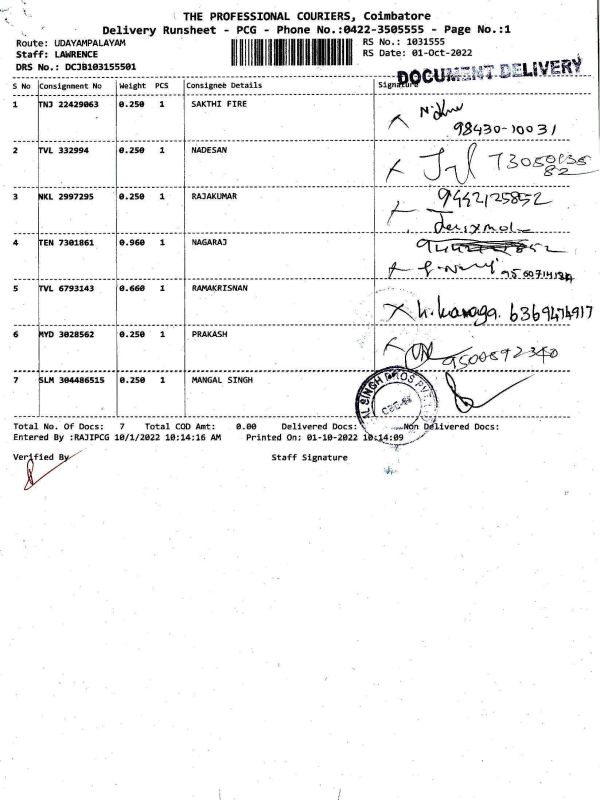 THE PROFESSIONAL COURIERS, Coimbatore
Delivery Runsheet - PCG - Phone No.:0422-3505555 - Page No.:1
Route: UDAYAMPALAYAM RS No.: 1031555
Staff: LAWRENCE RS Date: 01-Oct-2022
DRS No.: DCJB103155501
DOCUMENT DELIVERY
S No Consignment No Weight PCS Consignee Details Signature
1 TNJ 22429063 0.250 1 SAKTHI FIRE
98430-10031
2 TVL 332994 0.250 1 NADESAN
3 NKL 2997295 0.250 1 RAJAKUMAR 9442125852
4 TEN 7301861 0.960 1 NAGARAJ
5 TVL 6793143 0.660 1 RAMAKRISNAN
6369474917
6 MYD 3028562 0.250 1 PRAKASH
9500592340
7 SLM 304486515 0.250 1 MANGAL SINGH
Total No. Of Docs: 7 Total COD Amt: 0.00 Delivered Docs: Non Delivered Docs:
Entered By :RAJIPCG 10/1/2022 10:14:16 AM Printed On: 01-10-2022 10:14:09
Verified By Staff Signature